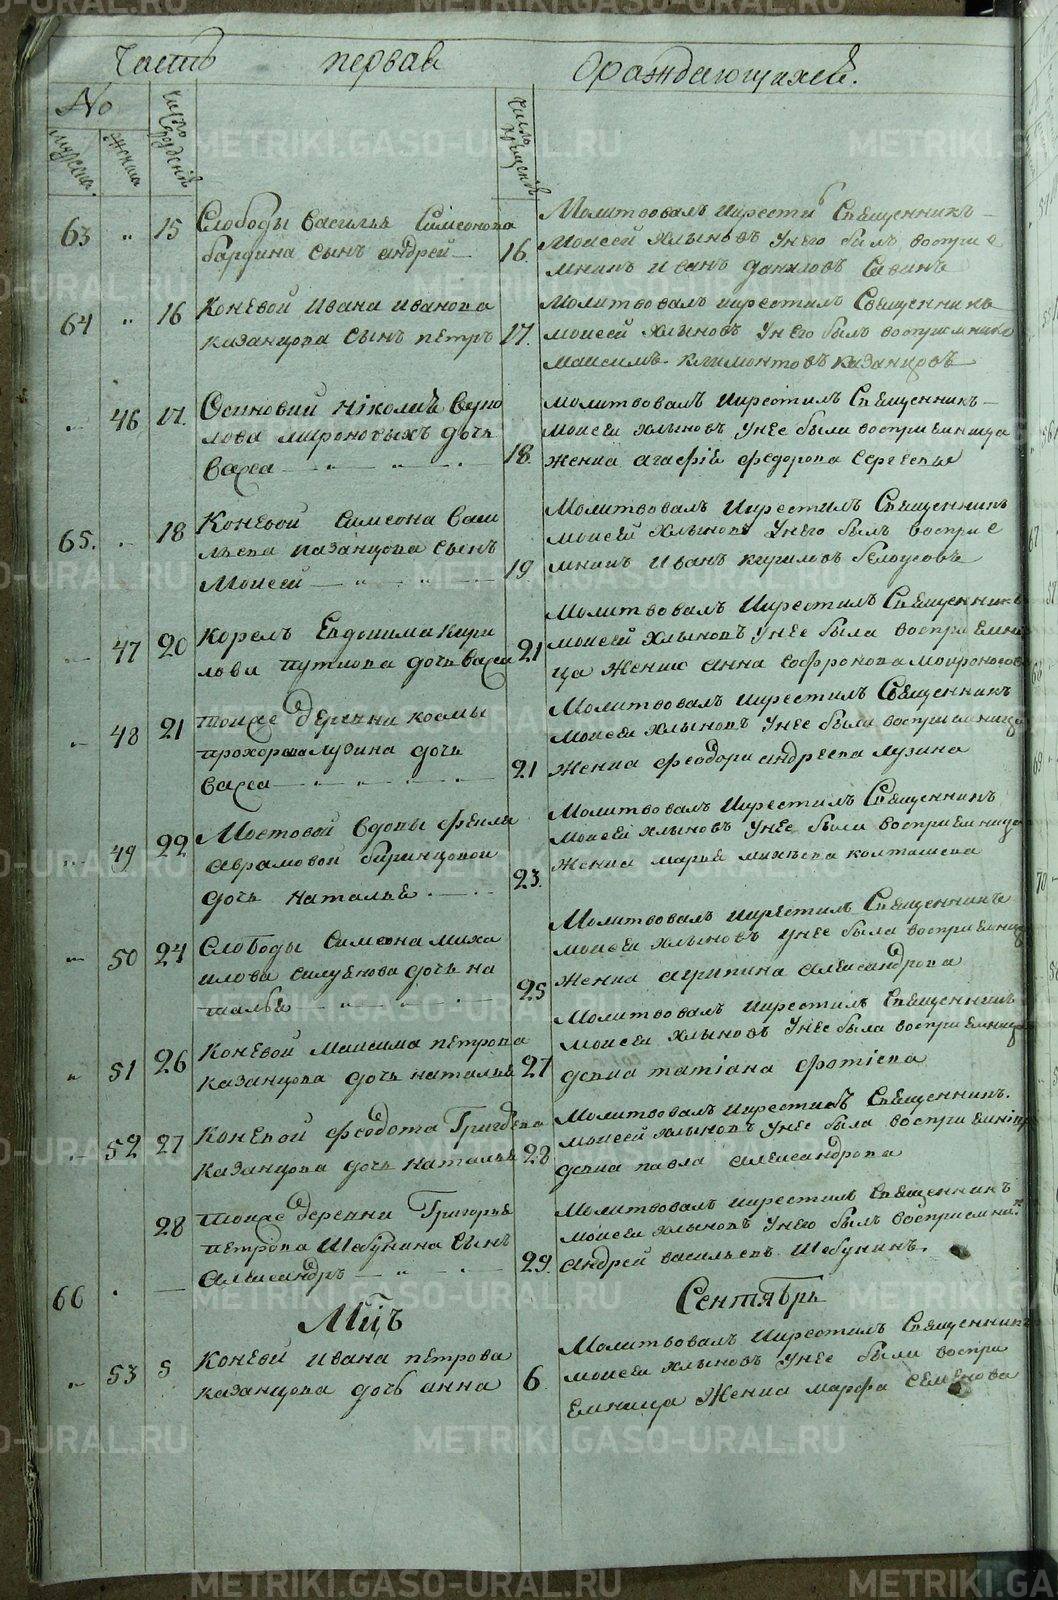 Часть первая о раждающихся.
No
мужеска.
женска
число рождения
число крещения
63 „ 15 Слободы Василья Симеонова
бардина сынъ андрей 16.
Молитвовалъ икрести Священникъ
Моисей хлыновъ унего былъ воспрїе
мникъ иванъ даниловъ Савинъ
64 „ 16 Коневой ивана иванова
казанцова сынъ петръ 17.
Молитвовалъ икрестилъ Священникъ
моисей хлыновъ унего былъ восприемнико
максимъ климонтовъ казанцовъ
46 17. Осиновки Николы
мироновыхъ дочь
васса 18.
Молитвовалъ икрестилъ Священникъ
моисей хлыновъ унее была восприемница
женка агафїя федорова сергеева
65. 18 Коневой Симеона Васи
льева казанцова сынъ
Моисей 19
Молитвовалъ икрестилъ Священникъ
моисей хлыновъ унего былъ восприе
мникъ иванъ кириловъ белоусовъ
47 20 корелъ Евдокима кири
лова путкова дочь васса 21
Молитвовалъ икрестилъ Священникъ
моисей хлыновъ унее была восприемни
ца женка анна софронова
48 21 тоиже деревни космы
прохорова лузина дочь
васса 21
Молитвовалъ икрестилъ Священникъ
моисей хлыновъ унее была восприемница
женка феодора андреева лузина
49 22 Мостовой вдовы феклы
аврамовой
дочь наталья 23.
Молитвовалъ икрестилъ Священникъ
моисей хлыновъ унее была восприемница
женка марья михеева колташева
50 24 Слободы Симеона миха
илова силуянова дочь на
талья 25
Молитвовалъ икрестилъ Священникъ
моисей хлыновъ унее была восприемница
женка агрипина александрова
51 26 Коневой Максима петрова
казанцова дочь наталья 27
Молитвовалъ икрестилъ Священникъ
моисей хлыновъ унее была восприемница
девка татїана фотїева
52 27 Коневой феодота Григорева
казанцова дочь наталья 28
Молитвовалъ икрестилъ Священникъ.
моисей хлыновъ унее была восприемница
девка павла александрова
28 тоиже деревни Григорья
петрова Шабунина сынъ
александръ 29.
66
Молитвовалъ икрестилъ Священникъ
моисей хлыновъ унего былъ восприемник
андрей васильевъ Шабунинъ.
Мцъ Сентябрь
53 5 Коневи ивана петрова
казанцова дочь анна 6
Молитвовалъ икрестилъ Священникъ
моисей хлыновъ унее была воспри
емница женка марфа семенова
METRIKI.GASO-URAL.RU